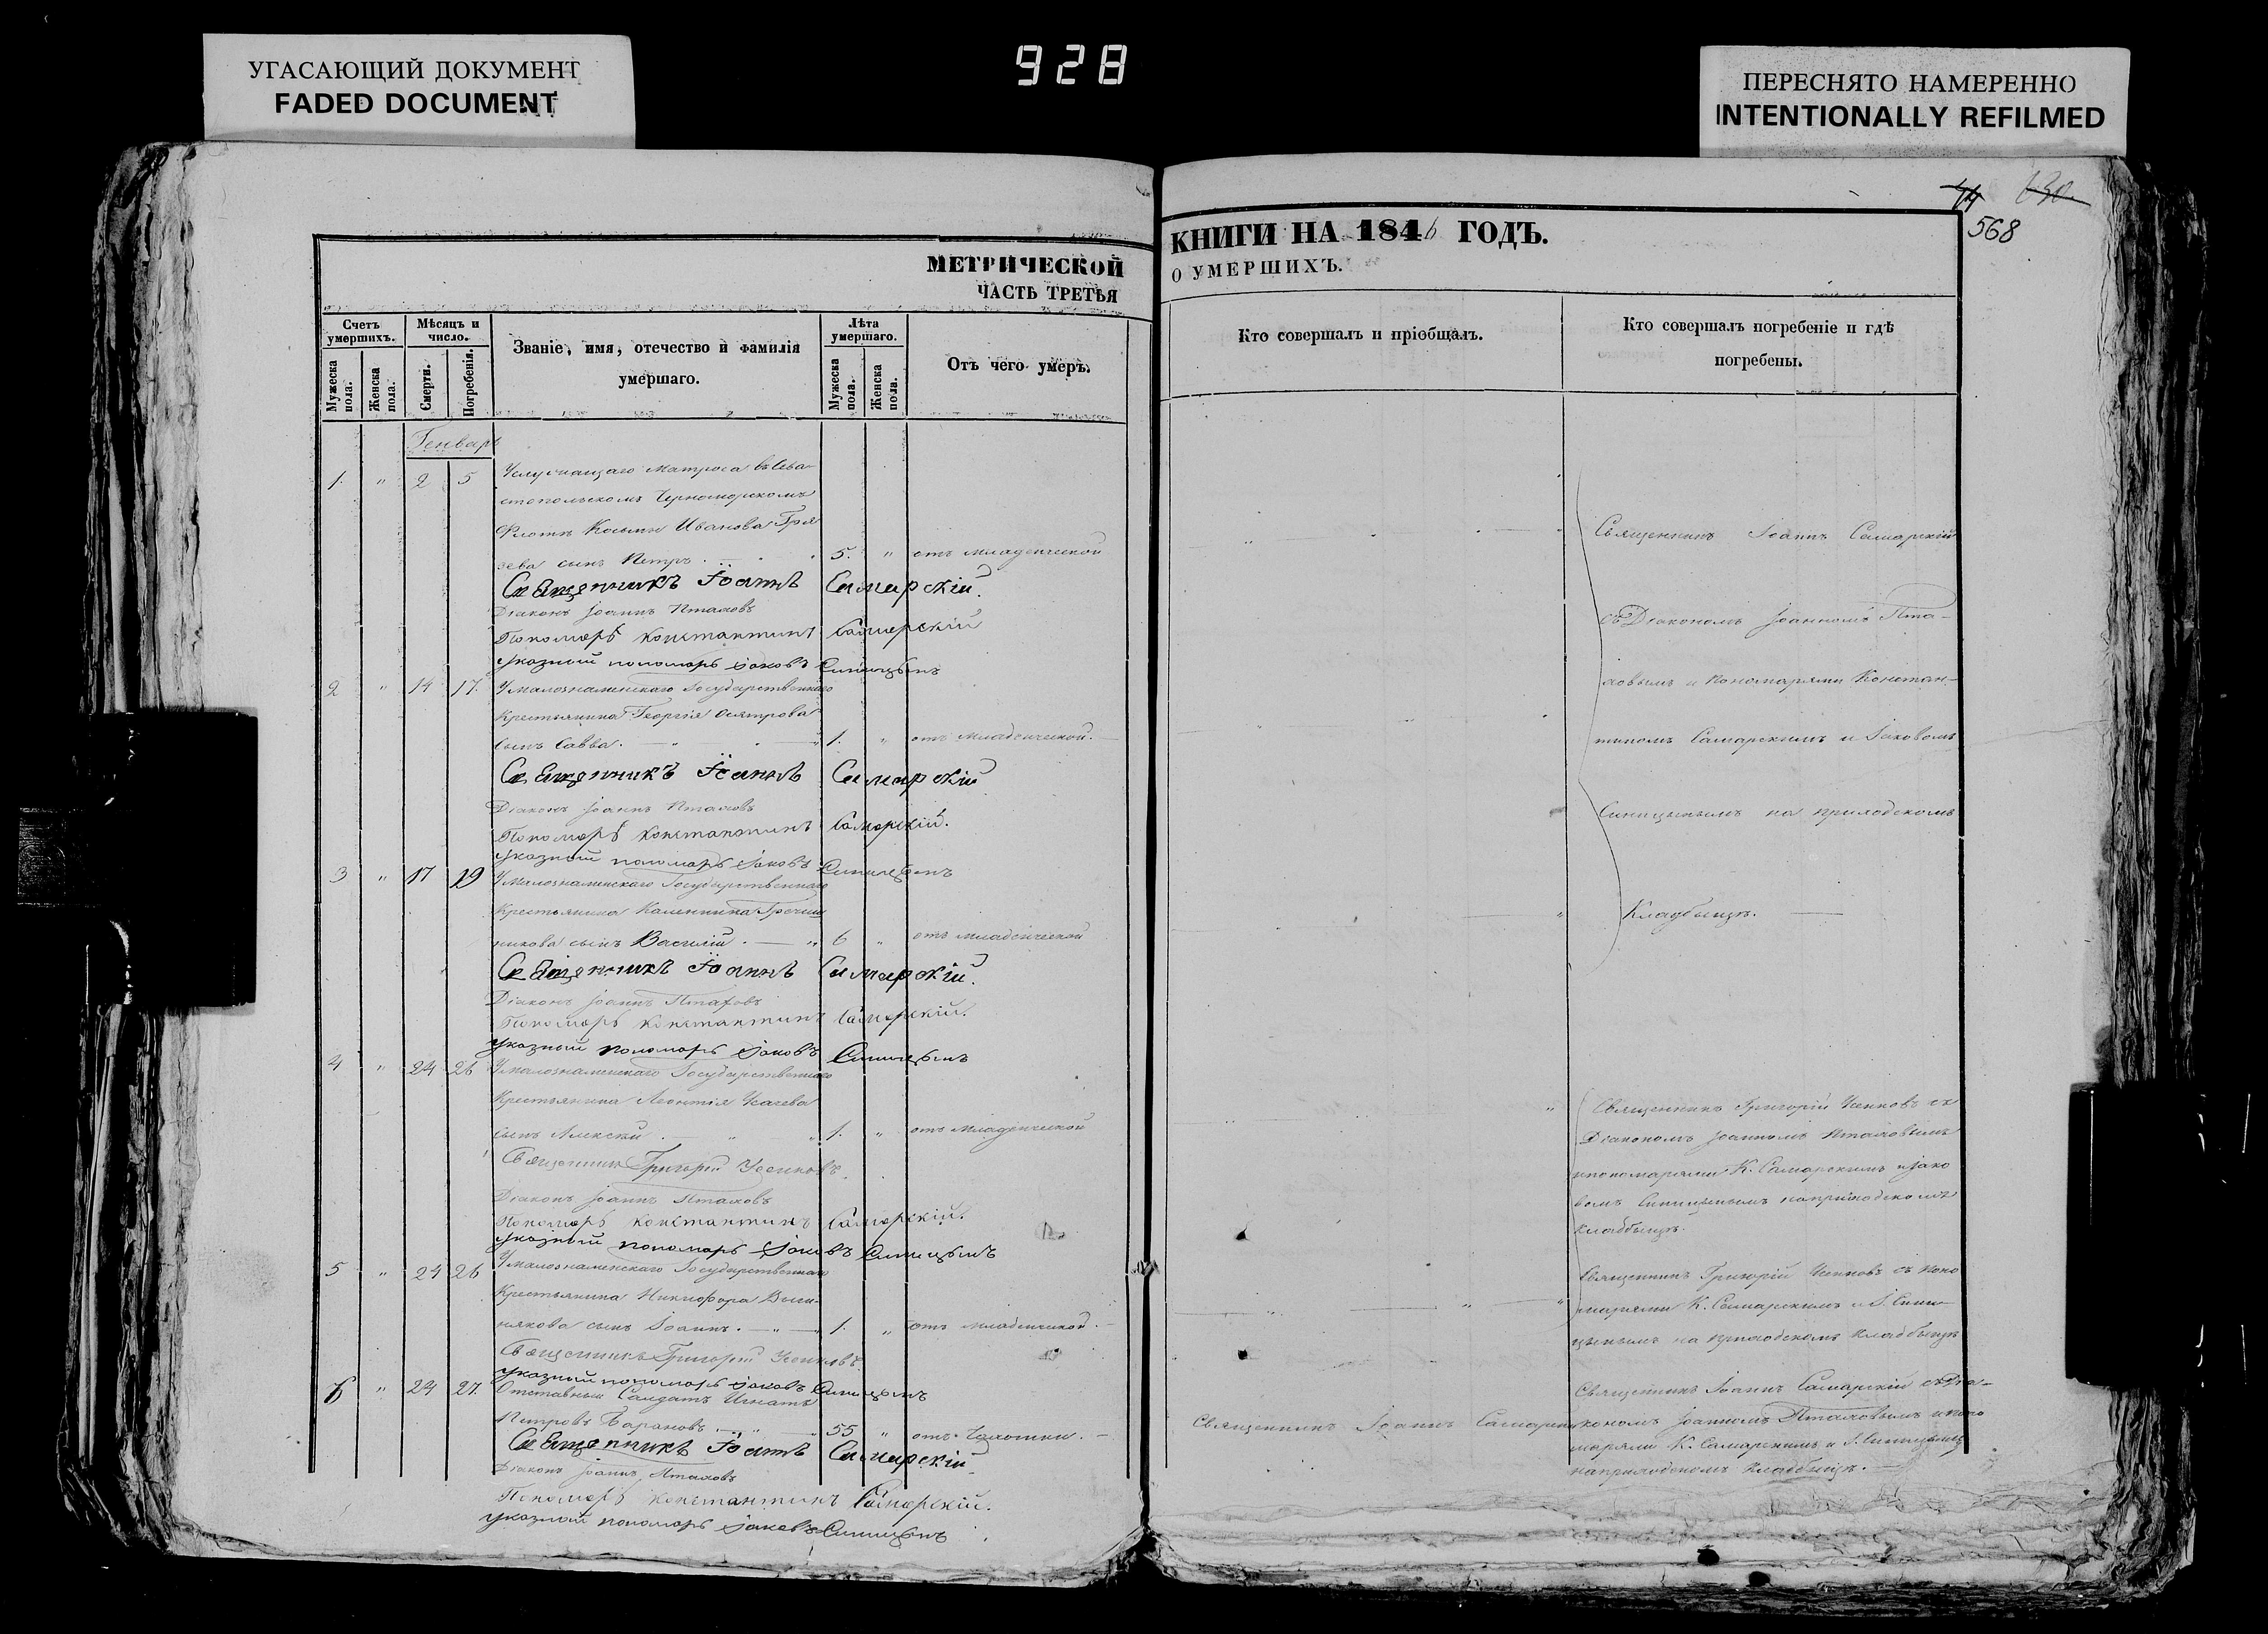 УГАСАЮЩИЙ ДОКУМЕНТ
FADED DOCUMENT
928
ПЕРЕСНЯТО НАМЕРЕННО
INTENTIONALLY REFILMED
МЕТРИЧЕСКОЙ
ЧАСТЬ ТРЕТЬЯ
Счетъ умершихъ.
Мужеска пола.
Женска пола.
Мѣсяцъ и число.
Смерти.
Погребенія.
Званіе, имя, отечество и фамилія
умершаго.
Лѣта умершаго.
Мужеска пола.
Женска пола.
Отъ чего умеръ.
Генварь
1. " 2 5 Услужащаго Матроса въ Сева-
стопольскомъ Черноморскомъ
Флотѣ Косьмы Иванова
сынъ Петръ. 5. " отъ младенческой
Священникъ Іоаннъ Самарскій.
Діаконъ Іоаннъ Птаховъ
Пономарь Константинъ Самарскій
Указный пономарь Іаковъ Синицынъ
2 " 14 17. У Малознаменскаго Государственнаго
Крестьянина Георгія Осятрова
сынъ Савва. 1. " отъ младенческой.
Священникъ Іоаннъ Самарскій
Діаконъ Іоаннъ Птаховъ
Пономарь Константинъ Самарскій.
Указный пономарь Іаковъ Синицынъ
3 " 17 19 У Малознаменскаго Государственнаго
Крестьянина Каленника Гречиш
никова сынъ Василій. " 6 " отъ младенческой
Священникъ Іоаннъ Самарскій.
Діаконъ Іоаннъ Птаховъ
Пономарь Константинъ Самарскій.
Указный пономарь Іаковъ Синицынъ
4 " 24 26 У Малознаменскаго Государственнаго
Крестьянина Леонтія Усачева
сынъ Алексѣй. " " 1. " отъ младенческой
Священникъ Григорій Усенковъ.
Діаконъ Іоаннъ Птаховъ
Пономарь Константинъ Самарскій.
Указный пономарь Іаковъ Синицынъ
5 " 24 26 У Малознаменскаго Государственнаго
Крестьянина Никифора
някова сынъ Іоаннъ. " 1. " отъ младенческой.
Священникъ Григорій Усенковъ
Указный пономарь Іаковъ Синицынъ
6 " 24 27. Отставный Салдатъ Игнатъ
Петровъ Барановъ 55 " отъ чахотки.
Священникъ Іоаннъ Самарскій
Діаконъ Іоаннъ Птаховъ
Пономарь Константинъ Самарскій.
Указный пономарь Іаковъ Синицынъ
568
КНИГИ НА 1846 ГОДЪ.
О УМЕРШИХЪ.
Кто совершалъ и пріобщалъ.
Кто совершалъ погребеніе и гдѣ
погребены.
Священникъ Іоаннъ Самарскій
съ Діакономъ Іоанномъ Пта-
ховымъ и Пономарями Констан-
тиномъ Самарскимъ и Іаковомъ
Синицынымъ на приходскомъ
Кладбищѣ.
Священникъ Григорій Усенковъ съ
Діакономъ Іоанномъ Птаховымъ
и пономарями К. Самарскимъ и Іако
вомъ Синицынымъ на приходскомъ
кладбищѣ.
Священникъ Григорій Усенковъ съ поно
марями К. Самарскимъ и І. Сини-
цынымъ на приходскомъ кладбищѣ
Священникъ Іоаннъ Самарскій
Священникъ Іоаннъ Самарскій съ Діа-
кономъ Іоанномъ Птаховымъ и поно
марями К. Самарскимъ и І. Синицынымъ
на приходскомъ кладбищѣ.